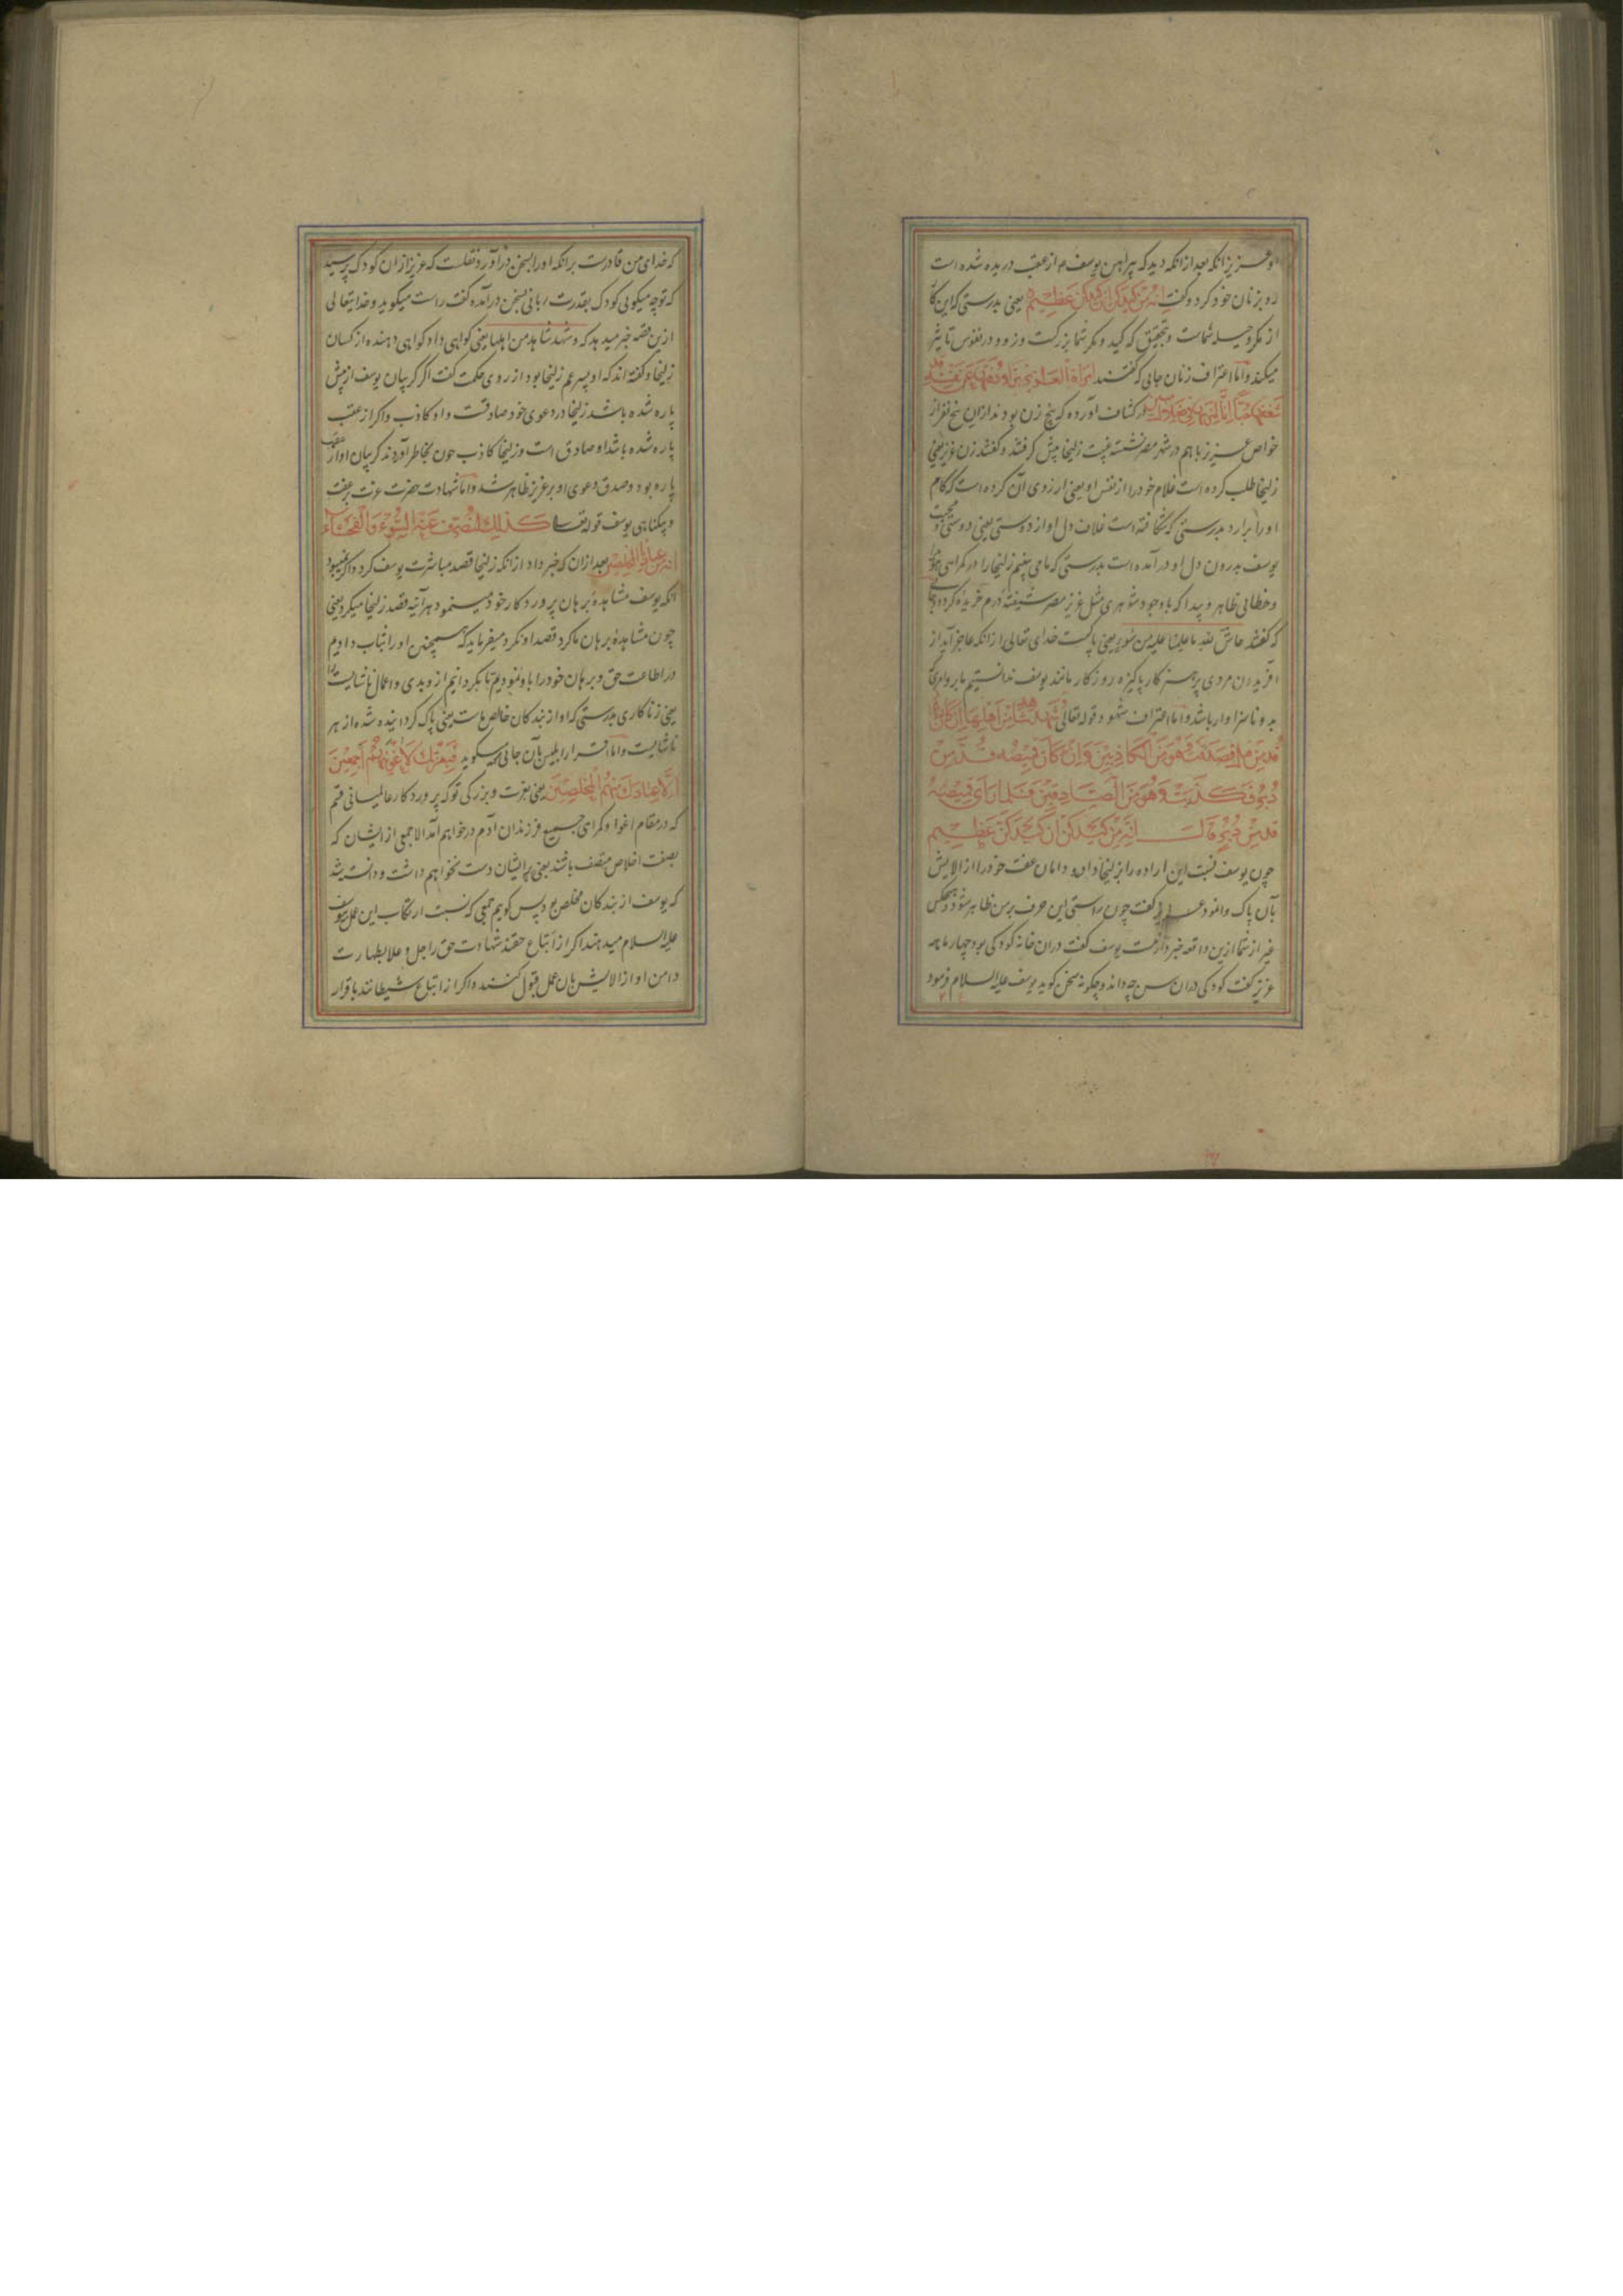 و عزیز انکه بعد از انکه دید که پیراهن یوسف م از عقب دریده شده است
رو بزنان خود کرد و گفت اِنَّهُ مِن كَيدِكُنَّ اِنَّ كَيدَكُنَّ عَظِيمٌ یعنی بدرستی که این کار
از مکر و حیله شماست و بتحقیق که کید و مکر شما بزرکست و زود در نفوس تاثیر
میکند و اما اعتراف زنان جایی که گفتند امراة العزيز تراود فتيها عن نفسه قد
شغفها حبا انا لنريها في ضلال مبين در کشاف آورده که پنج زن بودند از ان پنج نفر از
خواص عزیز زنها باهم در شهر مصر نشسته غیبت زلیخا پیش گرفتند و گفتند زن عزیز یعنی
زلیخا طلب کرده است غلام خود را از نفس او یعنی ارزوی آن کرده است که کام
او را برارد بدرستی که شکافته است غلاف دل او از دوستی یعنی دوستی و محبت
یوسف بدرون دل او در آمده است بدرستی که ما می بینیم زلیخا را در کمراهی
و خطائی ظاهر و پیدا که با وجود شوهری مثل عزیز مصر شیفته درم خریده کردد
که گفتند حاش لله ما علمنا علیه من سوء یعنی پاکست خدای تعالی از انکه عاجز آید از
افریدن مردی پرهیز کار پاکیزه روزکار مانند یوسف ندانستیم ما بر و امری که
بد و ناسزاوار باشد و اما اعتراف شهود قوله تعالی شهد شاهد من اهلها ان كان قميصه
قد من قبل فصدقت وهو من الكاذبين وان كان قميصه قد من
دبر فكذبت وهو من الصادقين فلما راى قميصه
قد من دبر قال انه من كيدكن ان كيدكن عظيم
چون یوسف نسبت این اراده را بزلیخا داد و دامان عفت خود را از الایش
بآن پاک وانمود عزیز گفت چون راستی این حرف بر من ظاهر شود و هیچکس
غیر از شما ازین واقعه خبردار نیست یوسف گفت در ان خانه کودکی بود چهار ماهه
عزیز گفت کودکی در ان سن چه داند و چکونه سخن کوید یوسف علیه السلام فرمود
که خدای من قادرست بر انکه او را بسخن در آورد نقلست که عزیز از ان کودک پرسید
که تو چه میکویی کودک بقدرت ربانی بسخن در آمده گفت راست میکوید و خدایتعالی
ازین قصه خبر میدهد که و شهد شاهد من اهلها یعنی کواهی داد کواهی دهنده از کسان
زلیخا و گفته اند که او پسر عم زلیخا بود از روی حکمت گفت اگر کریبان یوسف از پیش
پاره شده باشد زلیخا در دعوی خود صادقست و او کاذب و اکر از عقب
پاره شده باشد او صادق است و زلیخا کاذب چون بخاطر آوردند کریبان او از عقب
پاره بود و صدق دعوی او بر عزیز ظاهر شد و اما شهادت حضرت عزت بر عفت
و بیکناهی یوسف قوله تعالی كذلك لنصرف عنه السوء والفحشاء
انه من عبادنا المخلصين بعد از ان که خبر داد از انکه زلیخا قصد مباشرت یوسف کرد و اکر نمیبود
انکه یوسف مشاهده برهان پروردکار خود مینمود هر آینه قصد زلیخا میکرد یعنی
چون مشاهده برهان ما کرد قصد او نکرد میفرماید که همچنین او را ثبات دادیم
در اطاعت حق و برهان خود را باو نمودیم تا بکردانیم از و بدی و اعمال ناشایست را
یعنی زناکاری بدرستی که او از بندکان خالص ماست یعنی پاک کردانیده شده از هر
ناشایست و اما اقرار ابلیس بآن جایی که میکوید فبعزتك لاغوينهم اجمعين
الا عبادك منهم المخلصين یعنی بعزت و بزرکی تو که پروردکار عالمیانی قسم
که در مقام اغوا و کمراهی جمیع فرزندان آدم در خواهم آمد الا جمعی از ایشان که
بصفت اخلاص متصف باشند یعنی بر ایشان دست نخواهم داشت و دانسته شد
که یوسف از بندکان مخلص بود پس کویم جمعی که نسبت ارتکاب این عمل بیوسف
علیه السلام میدهند اکر از اتباع حقند شهادت حق را جل و علا بطهارت
دامن او از الایش بآن عمل قبول کنند و اکر از اتباع شیطانند باقرار